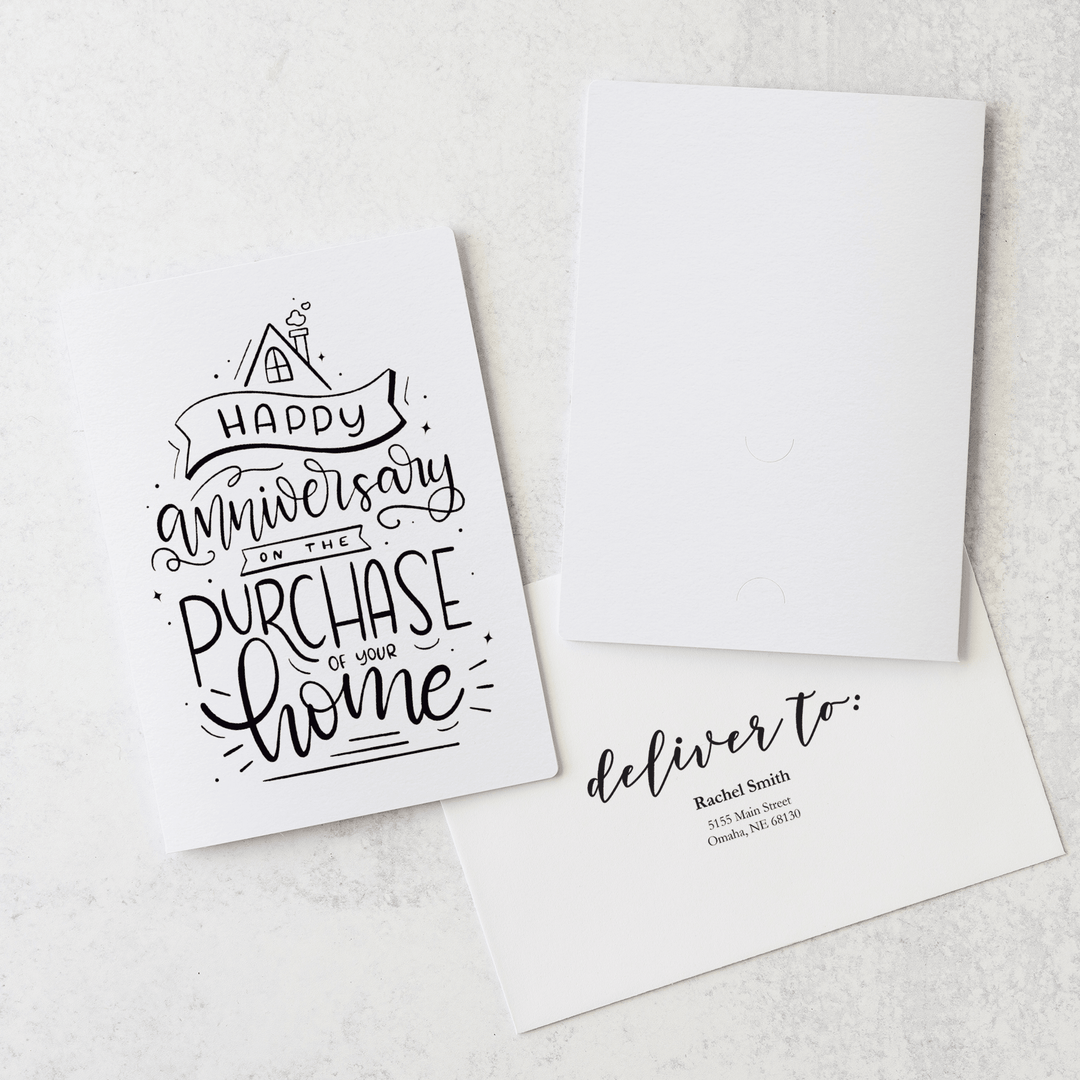 HAPPY
anniversary
ON THE
PURCHASE
OF YOUR
home
deliver to:
Rachel Smith
5155 Main Street
Omaha, NE 68130